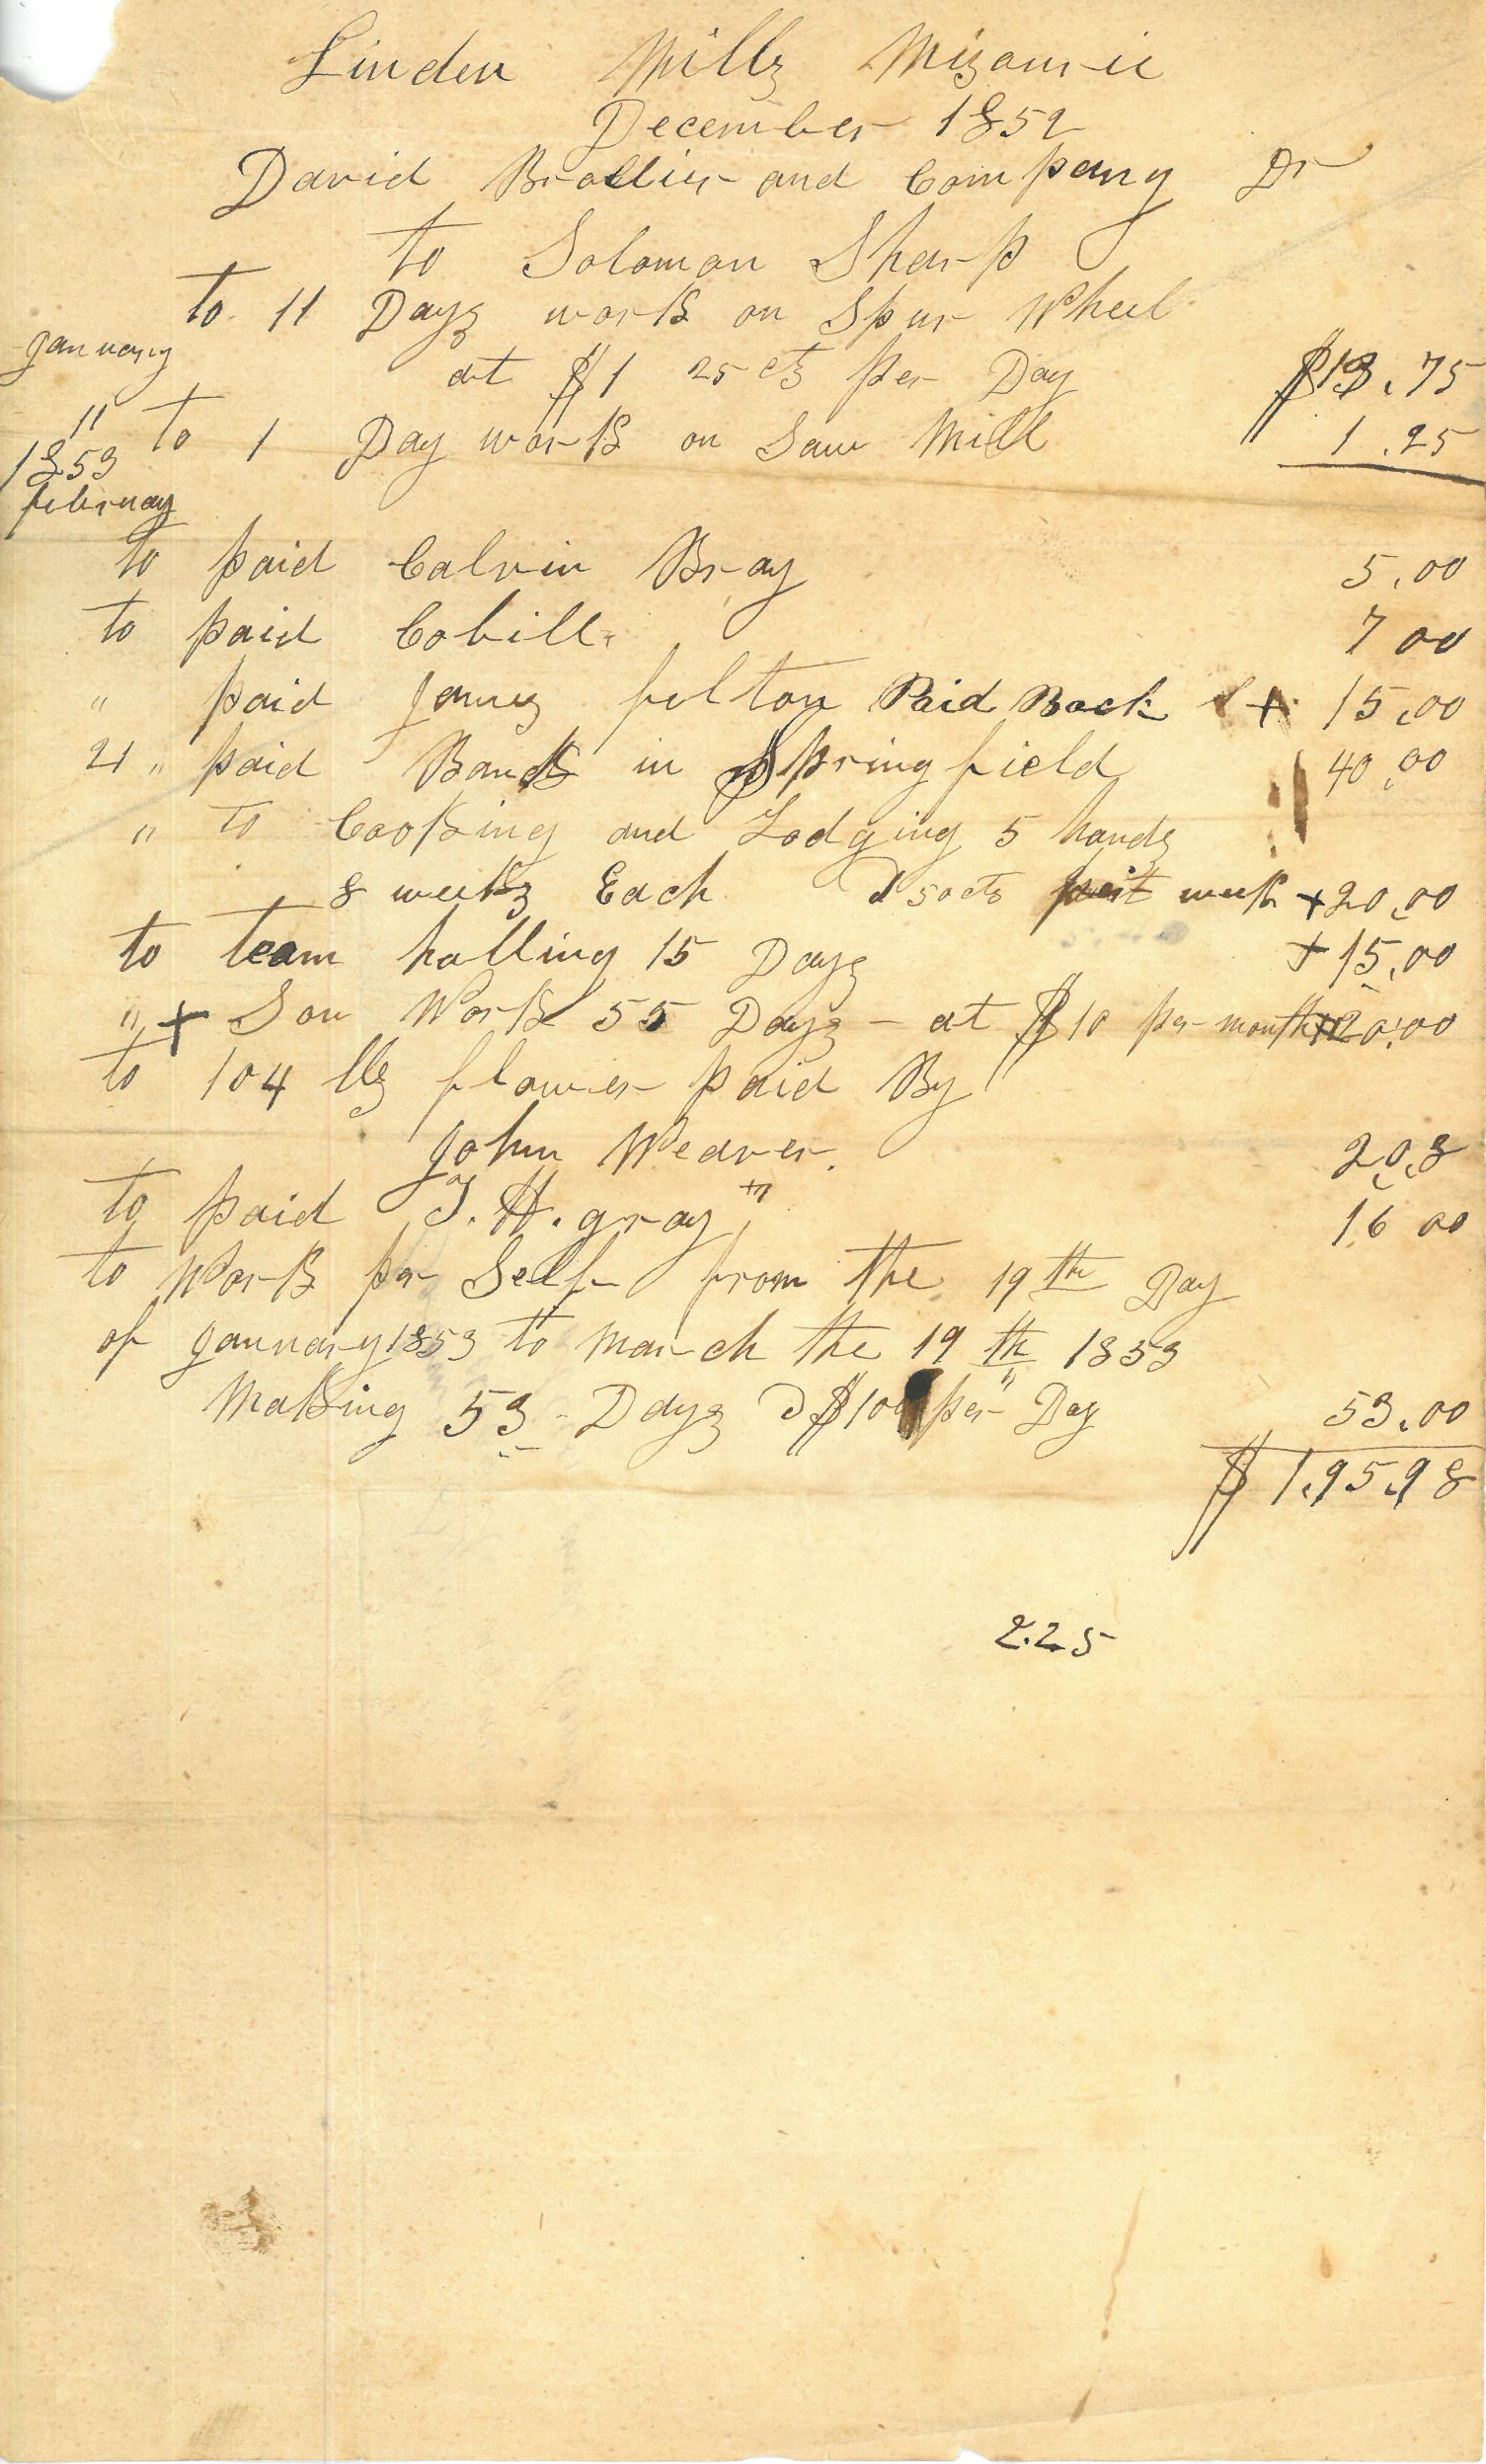 Linden Mills Mizourie
December 1852
David Brallier and Company Dr
to Soloman Sharp
to 11 Days work on Spur Wheel
January
at $1 25 cts per Day $13.75
11 to 1 Day work on Saw Mill 1.25
1853
february
to paid Calvin Bray 5.00
to paid Cobill 7 00
" paid James felton Paid Back + 15.00
21 " paid Bank in Springfield 40.00
" to Cooking and Lodging 5 hands
8 weeks Each 50cts week +20.00
to team halling 15 Days +15.00
" + Son Work 55 Days - at $10 per month 20.00
to 104 lbs flower paid By
John Weaver. 20.8
to paid J. H. gray 16 00
to Work per Self from the 19th Day
of January 1853 to march the 19th 1853
Making 53 Days $100 per Day 53.00
$ 1.95.98
2.25